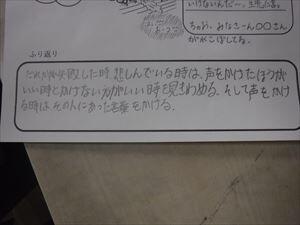 いけないんだ〜
ちゅお、みなさーん〇〇さん
がえこぼしてる。
ふり返り
だれかが失敗した時悲しんでいる時は、声をかけたほうが
いい時とかけない方がいい時を見きわめる。そして声をかけ
る時は、その人にあった言葉をかける。